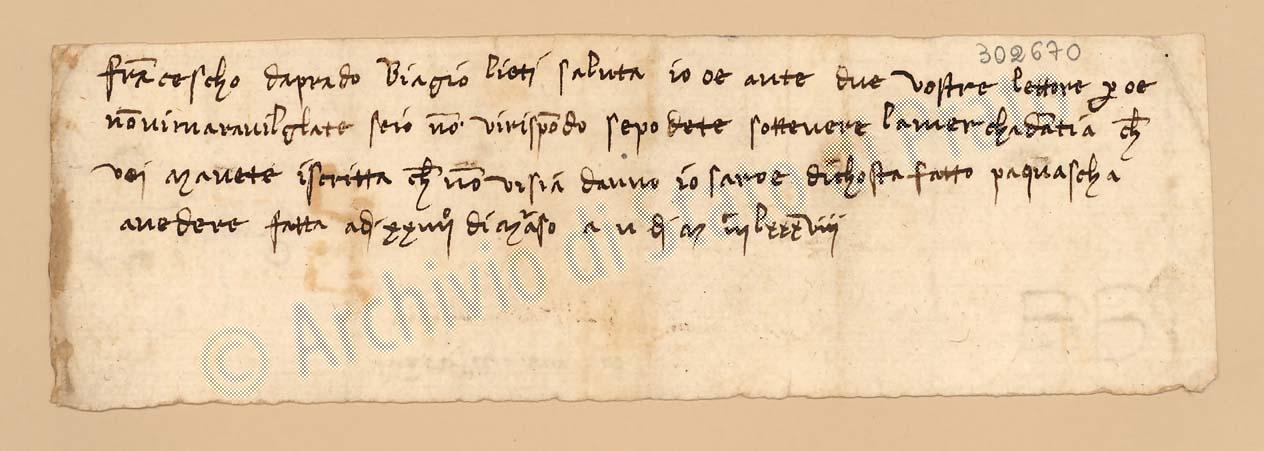 302670
francescho daprado Biagio lieti saluta io oe aute due vostre lettore p oe
nō vi maravilglate seio nō vi rispōdo se podete sottenere la merchadātia ch
voi mavete iscritta ch nō vi sia danno io saroe di chosta fatto paquascha
avedere fatta adj xxvii di março
© Archivio di Stato di Prato